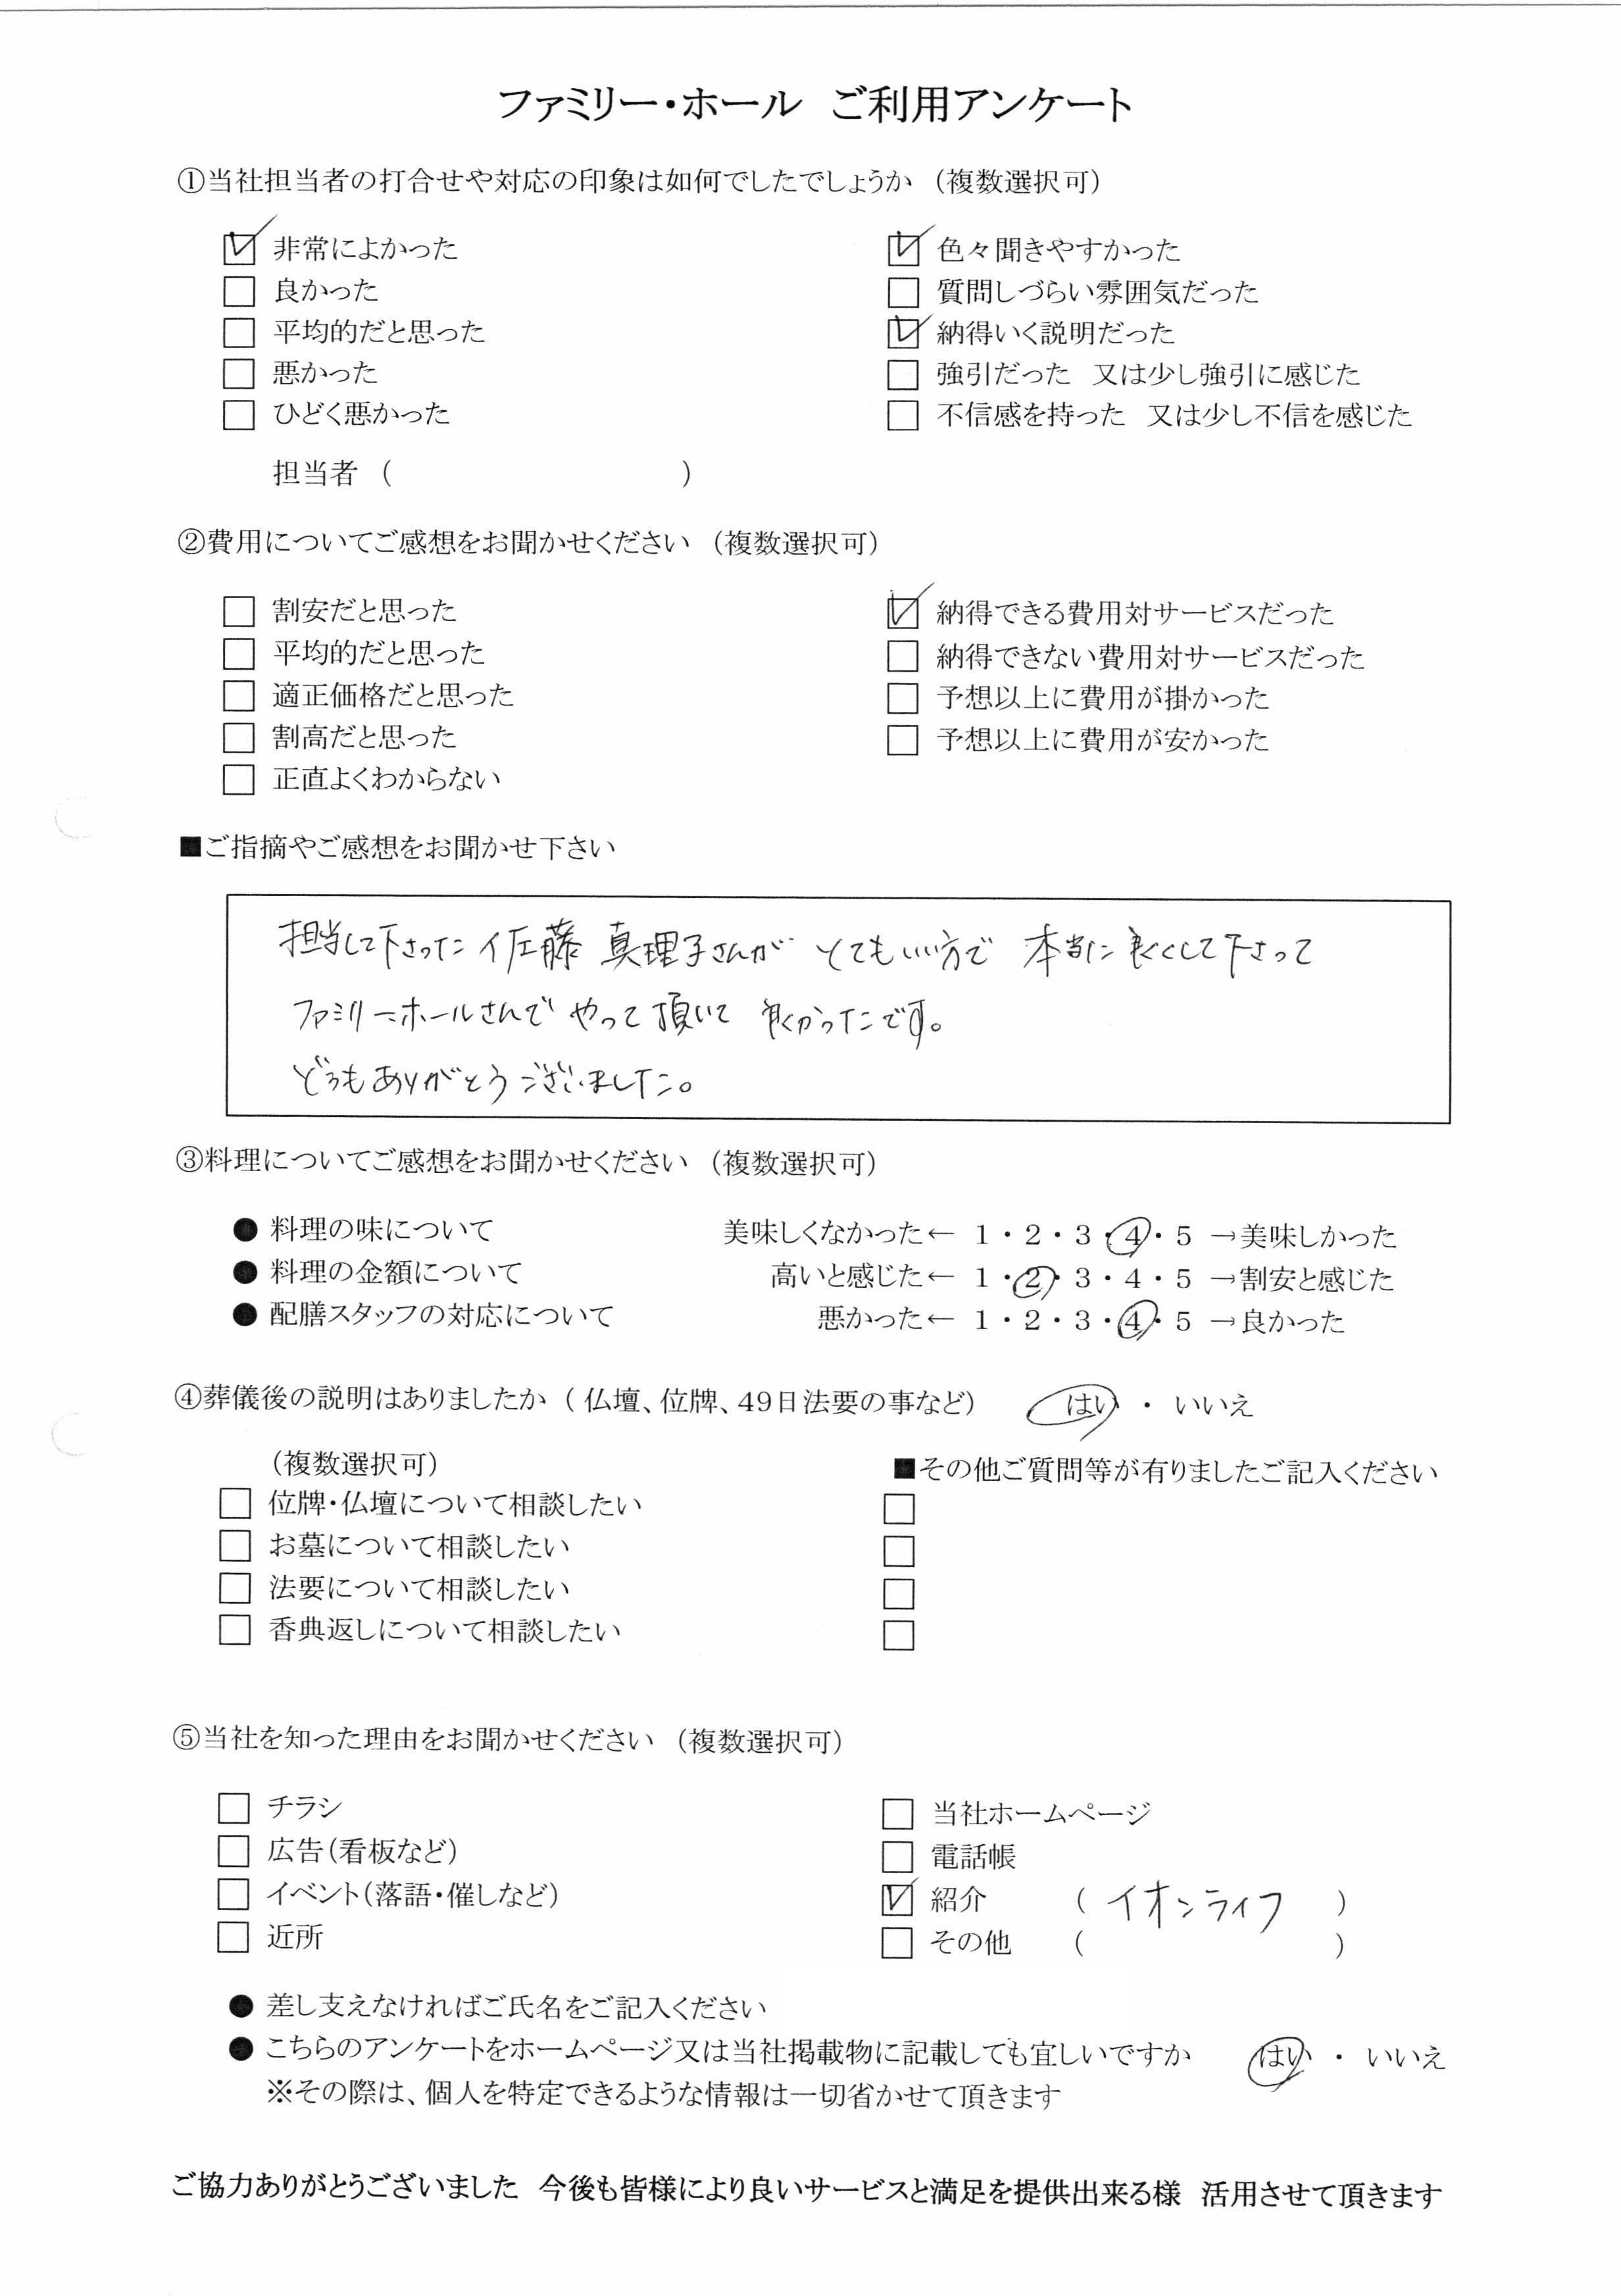 ファミリー・ホール ご利用アンケート
①当社担当者の打合せや対応の印象は如何でしたでしょうか （複数選択可）
☑ 非常によかった ☑ 色々聞きやすかった
□ 良かった □ 質問しづらい雰囲気だった
□ 平均的だと思った ☑ 納得いく説明だった
□ 悪かった □ 強引だった 又は少し強引に感じた
□ ひどく悪かった □ 不信感を持った 又は少し不信を感じた
担当者 （ ）
②費用についてご感想をお聞かせください （複数選択可）
□ 割安だと思った ☑ 納得できる費用対サービスだった
□ 平均的だと思った □ 納得できない費用対サービスだった
□ 適正価格だと思った □ 予想以上に費用が掛かった
□ 割高だと思った □ 予想以上に費用が安かった
□ 正直よくわからない
■ご指摘やご感想をお聞かせ下さい
担当して下さった佐藤 真理子さんが とてもいい方で 本当に良くして下さって
ファミリーホールさんで やって頂いて 良かったです。
どうもありがとうございました。
③料理についてご感想をお聞かせください （複数選択可）
● 料理の味について 美味しくなかった← 1・2・3・4・5 →美味しかった
● 料理の金額について 高いと感じた← 1・2・3・4・5 →割安と感じた
● 配膳スタッフの対応について 悪かった← 1・2・3・4・5 →良かった
④葬儀後の説明はありましたか （ 仏壇、位牌、49日法要の事など） はい ・ いいえ
（複数選択可） ■その他ご質問等が有りましたご記入ください
□ 位牌・仏壇について相談したい □
□ お墓について相談したい □
□ 法要について相談したい □
□ 香典返しについて相談したい □
⑤当社を知った理由をお聞かせください （複数選択可）
□ チラシ □ 当社ホームページ
□ 広告（看板など） □ 電話帳
□ イベント（落語・催しなど） ☑ 紹介 （ イオンライフ ）
□ 近所 □ その他 （ ）
● 差し支えなければご氏名をご記入ください
● こちらのアンケートをホームページ又は当社掲載物に記載しても宜しいですか はい ・ いいえ
※その際は、個人を特定できるような情報は一切省かせて頂きます
ご協力ありがとうございました 今後も皆様により良いサービスと満足を提供出来る様 活用させて頂きます